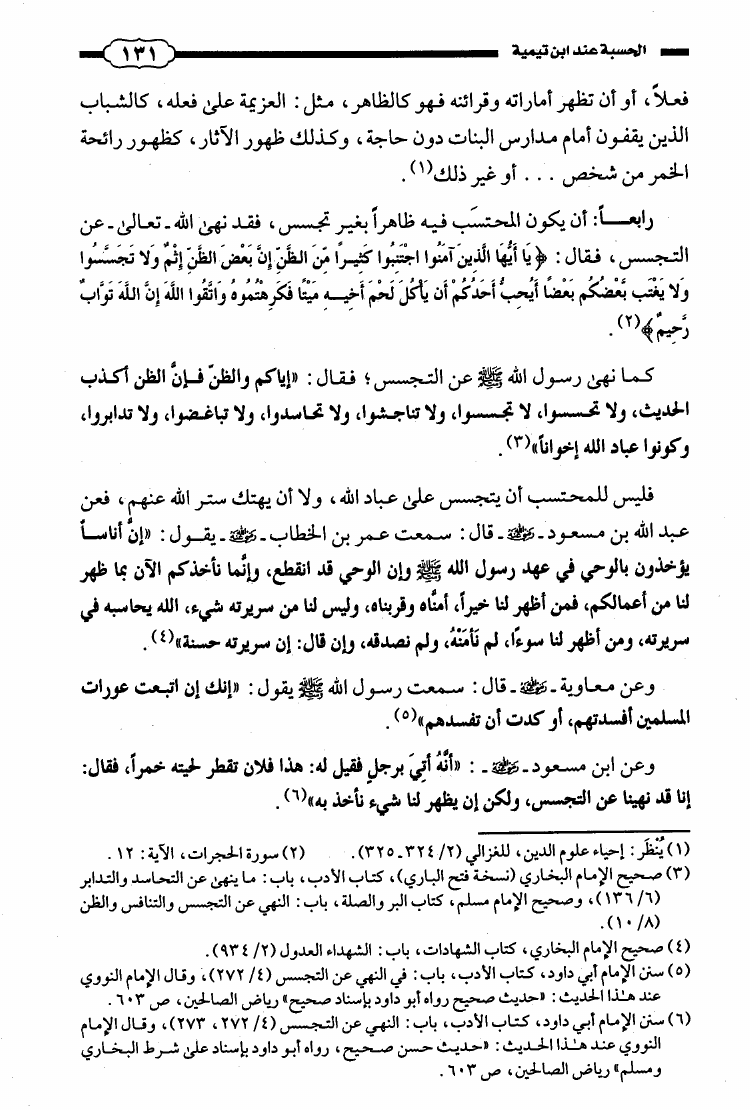 الحسبة عند ابن تيمية
١٣١
فعلاً، أو أن تظهر أماراته وقرائنه فهو كالظاهر، مثل: العزيمة على فعله، كالشباب
الذين يقفون أمام مدارس البنات دون حاجة، وكذلك ظهور الآثار، كظهور رائحة
الخمر من شخص ... أو غير ذلك(١).
رابعـــاً: أن يكون المحتسَب فيه ظاهراً بغير تجسس، فقد نهى الله ـ تعالى ـ عن
التجسس، فقال: ﴿يَا أَيُّهَا الَّذِينَ آمَنُوا اجْتَنِبُوا كَثِيرًا مِّنَ الظَّنِّ إِنَّ بَعْضَ الظَّنِّ إِثْمٌ وَلا تَجَسَّسُوا
وَلا يَغْتَب بَّعْضُكُم بَعْضًا أَيُحِبُّ أَحَدُكُمْ أَن يَأْكُلَ لَحْمَ أَخِيهِ مَيْتًا فَكَرِهْتُمُوهُ وَاتَّقُوا اللَّهَ إِنَّ اللَّهَ تَوَّابٌ
رَّحِيمٌ﴾(٢).
كما نهى رسول الله ﷺ عن التجسس؛ فقال: «إياكم والظن فإنَّ الظن أكذب
الحديث، ولا تحسسوا، لا تجسسوا، ولا تناجشوا، ولا تحاسدوا، ولا تباغضوا، ولا تدابروا،
وكونوا عباد الله إخواناً»(٣).
فليس للمحتسب أن يتجسس على عباد الله، ولا أن يهتك ستر الله عنهم، فعن
عبد الله بن مسعود ـ رضي الله عنه ـ قال: سمعت عمر بن الخطاب ـ رضي الله عنه ـ يقول: «إنَّ أناساً
يؤخذون بالوحي في عهد رسول الله ﷺ وإن الوحي قد انقطع، وإنَّما نأخذكم الآن بما ظهر
لنا من أعمالكم، فمن أظهر لنا خيراً، أمنَّاه وقربناه، وليس لنا من سريرته شيء، الله يحاسبه في
سريرته، ومن أظهر لنا سوءًا، لم نَأمَنْهُ، ولم نصدقه، وإن قال: إن سريرته حسنة»(٤).
وعن معاوية ـ رضي الله عنه ـ قال: سمعت رسول الله ﷺ يقول: «إنك إن اتبعت عورات
المسلمين أفسدتهم، أو كدت أن تفسدهم»(٥).
وعن ابن مسعود ـ رضي الله عنه ـ: «أنَّهُ أُتِيَ برجلٍ فقيل له: هذا فلان تقطر لحيته خمراً، فقال:
إنا قد نهينا عن التجسس، ولكن إن يظهر لنا شيء نأخذ به»(٦).
(١) يُنْظَر: إحياء علوم الدين، للغزالي (٢/ ٣٢٤ـ ٣٢٥). (٢) سورة الحجرات، الآية: ١٢.
(٣) صحيح الإمام البخاري (نسخة فتح الباري)، كتاب الأدب، باب: ما ينهى عن التحاسد والتدابر
(٦/ ١٣٦)، وصحيح الإمام مسلم، كتاب البر والصلة، باب: النهي عن التجسس والتنافس والظن
(٨/ ١٠).
(٤) صحيح الإمام البخاري، كتاب الشهادات، باب: الشهداء العدول (٢/ ٩٣٤).
(٥) سنن الإمام أبي داود، كتاب الأدب، باب: في النهي عن التجسس (٤/ ٢٧٢)، وقال الإمام النووي
عند هذا الحديث: «حديث صحيح رواه أبو داود بإسناد صحيح» رياض الصالحين، ص ٦٠٣.
(٦) سنن الإمام أبي داود، كتاب الأدب، باب: النهي عن التجسس (٤/ ٢٧٢، ٢٧٣)، وقال الإمام
النووي عند هذا الحديث: «حديث حسن صحيح، رواه أبو داود بإسناد على شرط البخاري
ومسلم» رياض الصالحين، ص ٦٠٣.